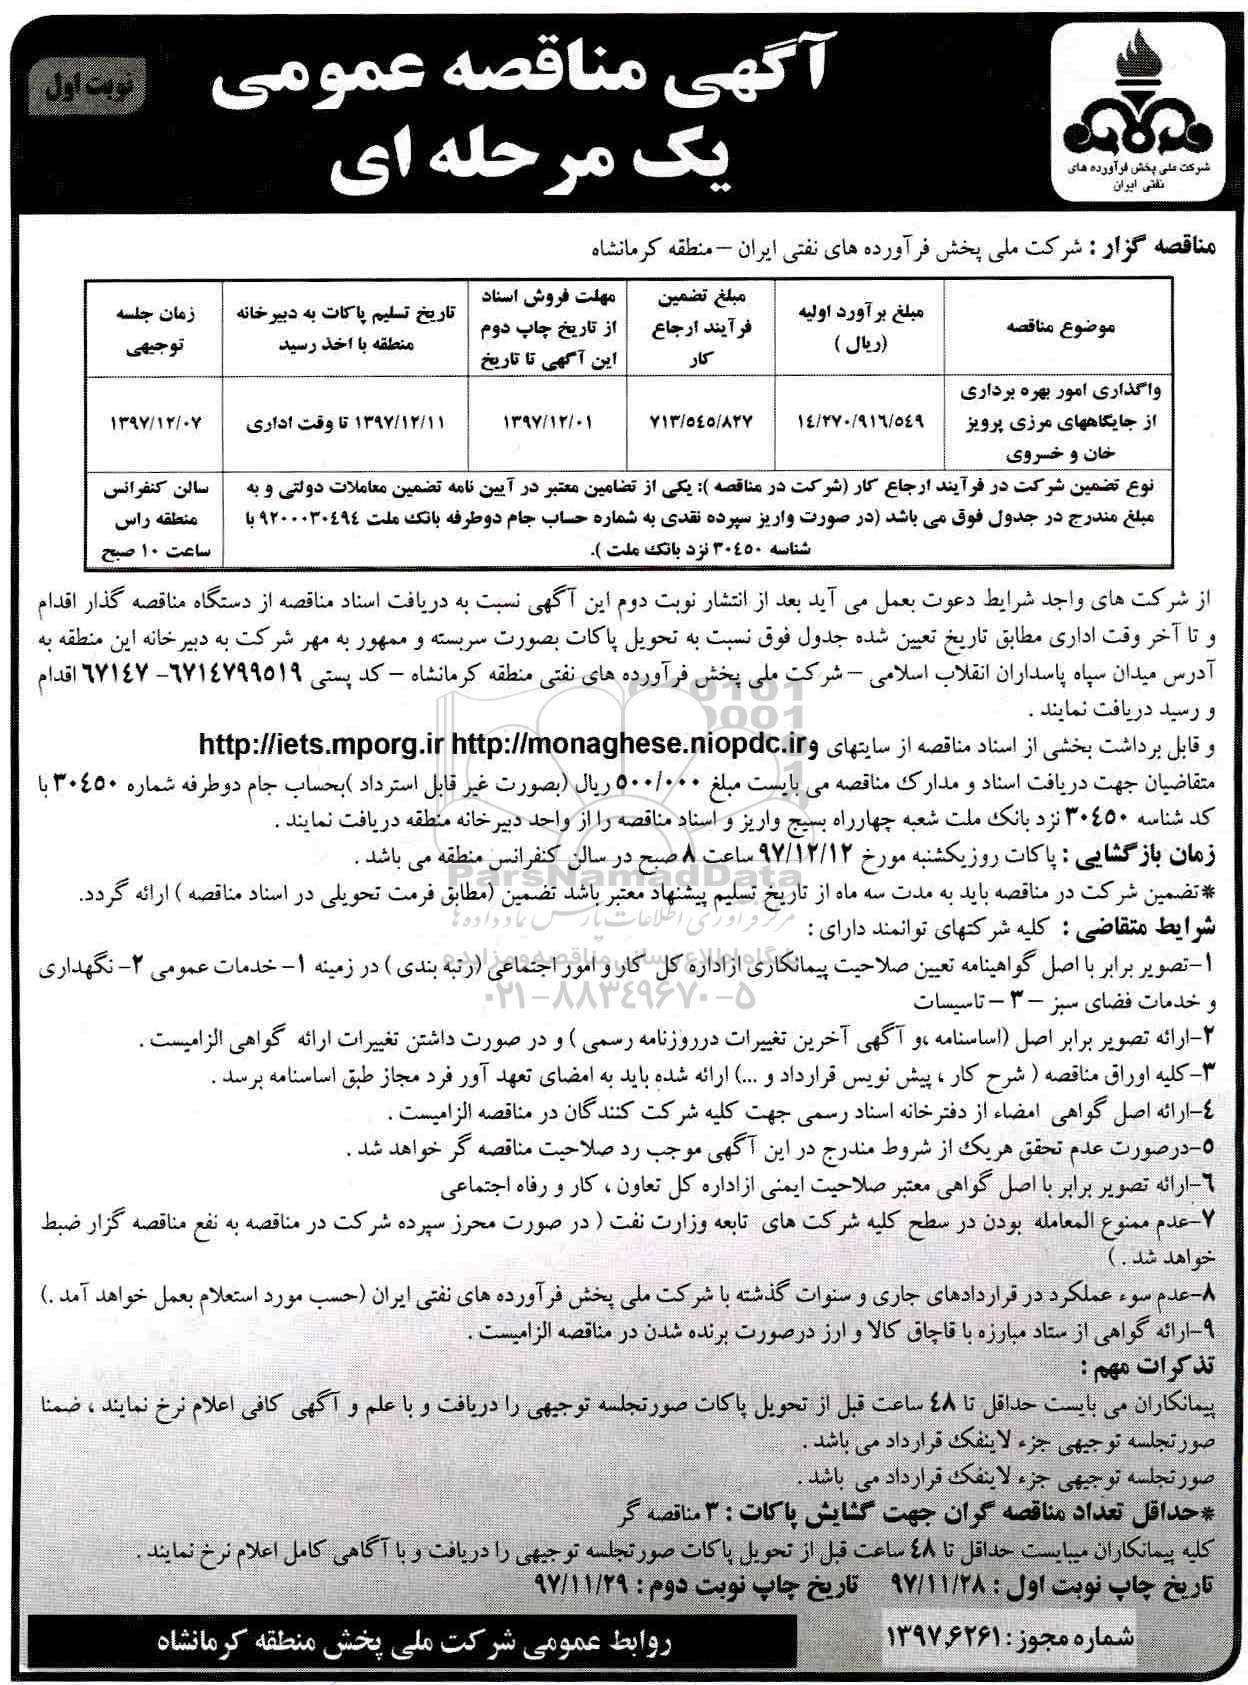 آگهی مناقصه عمومی
یک مرحله ای
نوبت اول
شرکت ملی پخش فرآورده های
نفتی ایران
مناقصه گزار : شرکت ملی پخش فرآورده های نفتی ایران – منطقه کرمانشاه
موضوع مناقصه
مبلغ برآورد اولیه
(ریال )
مبلغ تضمین
فرآیند ارجاع
کار
مهلت فروش اسناد
از تاریخ چاپ دوم
این آگهی تا تاریخ
تاریخ تسلیم پاکات به دبیرخانه
منطقه با اخذ رسید
زمان جلسه
توجیهی
واگذاری امور بهره برداری
از جایگاههای مرزی پرویز
خان و خسروی
۱٤/۲۷۰/۹۱٦/۵٤۹
۷۱۳/۵٤۵/۸۲۷
۱۳۹۷/۱۲/۰۱
۱۳۹۷/۱۲/۱۱ تا وقت اداری
۱۳۹۷/۱۲/۰۷
نوع تضمین شرکت در فرآیند ارجاع کار (شرکت در مناقصه ): یکی از تضامین معتبر در آیین نامه تضمین معاملات دولتی و به
مبلغ مندرج در جدول فوق می باشد (در صورت واریز سپرده نقدی به شماره حساب جام دوطرفه بانک ملت ۹۲۰۰۰۳۰٤۹٤ با
شناسه ۳۰٤۵۰ نزد بانک ملت ).
سالن کنفرانس
منطقه راس
ساعت ۱۰ صبح
از شرکت های واجد شرایط دعوت بعمل می آید بعد از انتشار نوبت دوم این آگهی نسبت به دریافت اسناد مناقصه از دستگاه مناقصه گذار اقدام
و تا آخر وقت اداری مطابق تاریخ تعیین شده جدول فوق نسبت به تحویل پاکات بصورت سربسته و ممهور به مهر شرکت به دبیرخانه این منطقه به
آدرس میدان سپاه پاسداران انقلاب اسلامی – شرکت ملی پخش فرآورده های نفتی منطقه کرمانشاه – کد پستی ٦۷۱٤۷۹۹۵۱۹- ٦۷۱٤۷ اقدام
و رسید دریافت نمایند .
و قابل برداشت بخشی از اسناد مناقصه از سایتهای http://monaghese.niopdc.ir و http://iets.mporg.ir
متقاضیان جهت دریافت اسناد و مدارک مناقصه می بایست مبلغ ۵۰۰/۰۰۰ ریال (بصورت غیر قابل استرداد )بحساب جام دوطرفه شماره ۳۰٤۵۰ با
کد شناسه ۳۰٤۵۰ نزد بانک ملت شعبه چهارراه بسیج واریز و اسناد مناقصه را از واحد دبیرخانه منطقه دریافت نمایند .
زمان بازگشایی : پاکات روزیکشنبه مورخ ۹۷/۱۲/۱۲ ساعت ۸ صبح در سالن کنفرانس منطقه می باشد .
*تضمین شرکت در مناقصه باید به مدت سه ماه از تاریخ تسلیم پیشنهاد معتبر باشد تضمین (مطابق فرمت تحویلی در اسناد مناقصه ) ارائه گردد.
ParsNamadData
مرکز فرآوری اطلاعات پارس نماد داده ها
شرایط متقاضی : کلیه شرکتهای توانمند دارای :
پایگاه اطلاع رسانی مناقصه و مزایده
۱-تصویر برابر با اصل گواهینامه تعیین صلاحیت پیمانکاری ازاداره کل کار و امور اجتماعی (رتبه بندی ) در زمینه ۱- خدمات عمومی ۲- نگهداری
و خدمات فضای سبز – ۳ – تاسیسات
۰۲۱-۸۸۳٤۹٦۷۰-۵
۲-ارائه تصویر برابر اصل (اساسنامه ،و آگهی آخرین تغییرات درروزنامه رسمی ) و در صورت داشتن تغییرات ارائه گواهی الزامیست .
۳-کلیه اوراق مناقصه ( شرح کار ، پیش نویس قرارداد و ...) ارائه شده باید به امضای تعهد آور فرد مجاز طبق اساسنامه برسد .
٤-ارائه اصل گواهی امضاء از دفترخانه اسناد رسمی جهت کلیه شرکت کنندگان در مناقصه الزامیست .
۵-درصورت عدم تحقق هریک از شروط مندرج در این آگهی موجب رد صلاحیت مناقصه گر خواهد شد .
٦-ارائه تصویر برابر با اصل گواهی معتبر صلاحیت ایمنی ازاداره کل تعاون ، کار و رفاه اجتماعی
۷-عدم ممنوع المعامله بودن در سطح کلیه شرکت های تابعه وزارت نفت ( در صورت محرز سپرده شرکت در مناقصه به نفع مناقصه گزار ضبط
خواهد شد . )
۸-عدم سوء عملکرد در قراردادهای جاری و سنوات گذشته با شرکت ملی پخش فرآورده های نفتی ایران (حسب مورد استعلام بعمل خواهد آمد .)
۹-ارائه گواهی از ستاد مبارزه با قاچاق کالا و ارز درصورت برنده شدن در مناقصه الزامیست .
تذکرات مهم :
پیمانکاران می بایست حداقل تا ٤۸ ساعت قبل از تحویل پاکات صورتجلسه توجیهی را دریافت و با علم و آگهی کافی اعلام نرخ نمایند ، ضمنا
صورتجلسه توجیهی جزء لاینفک قرارداد می باشد .
صورتجلسه توجیهی جزء لاینفک قرارداد می باشد .
*حداقل تعداد مناقصه گران جهت گشایش پاکات : ۳ مناقصه گر
کلیه پیمانکاران میبایست حداقل تا ٤۸ ساعت قبل از تحویل پاکات صورتجلسه توجیهی را دریافت و با آگاهی کامل اعلام نرخ نمایند .
تاریخ چاپ نوبت اول : ۹۷/۱۱/۲۸ تاریخ چاپ نوبت دوم : ۹۷/۱۱/۲۹
شماره مجوز : ۱۳۹۷,۶۲۶۱
روابط عمومی شرکت ملی پخش منطقه کرمانشاه